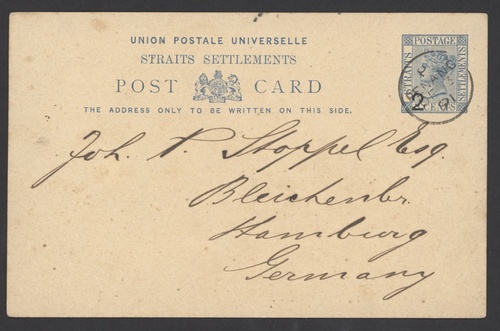 UNION POSTALE UNIVERSELLE
STRAITS SETTLEMENTS
POST CARD
THE ADDRESS ONLY TO BE WRITTEN ON THIS SIDE.
STRAITS POSTAGE SETTLEMENTS
PENANG
Joh. P. Stoppel Esq.
Bleichenbr.
Hamburg
Germany